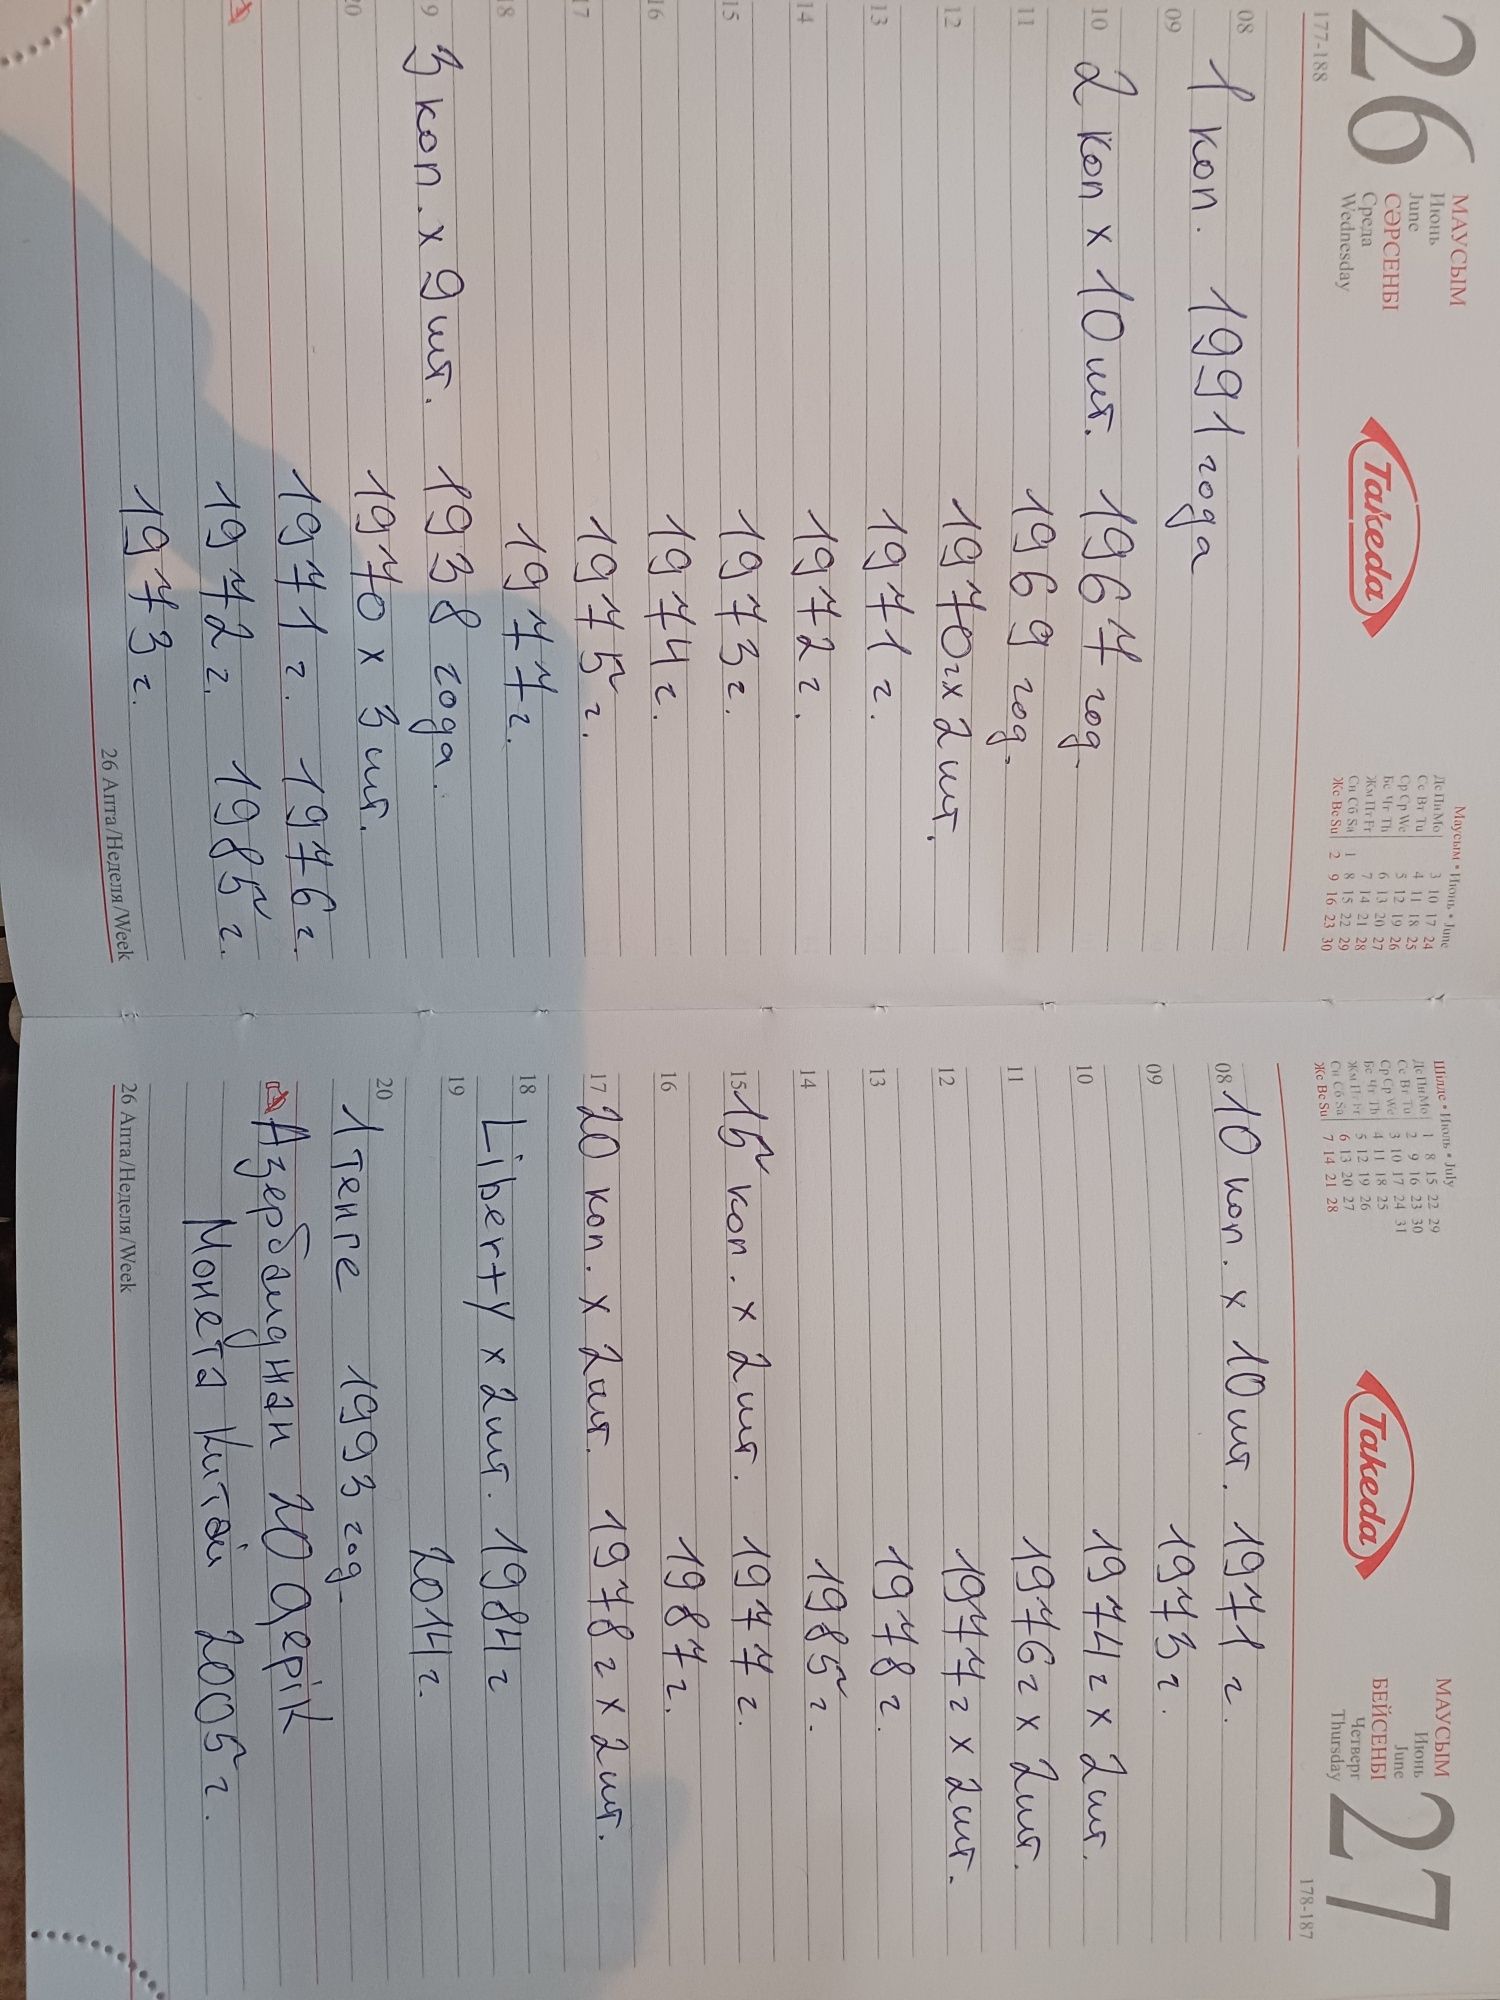 26
МАУСЫМ
Июнь
June
СӘРСЕНБІ
Среда
Wednesday
177-188
Takeda
Маусым • Июнь • June
Дс Пн Mo 3 10 17 24
Сс Вт Tu 4 11 18 25
Ср Ср We 5 12 19 26
Бс Чт Th 6 13 20 27
Жм Пт Fr 7 14 21 28
Сн Сб Sa 1 8 15 22 29
Жс Вс Su 2 9 16 23 30
08 1 коп. 1991 года
09
10 2 коп х 10 шт. 1967 год.
11 1969 год.
12 1970г х 2 шт.
13 1971 г.
14 1972 г.
15 1973 г.
16 1974 г.
17 1975 г.
18 1977 г.
19 3 коп. х 9 шт. 1938 года.
20 1970 х 3 шт.
1971 г. 1976 г.
1972 г. 1985 г.
1973 г.
26 Апта/Неделя/Week
Шілде • Июль • July
Дс Пн Mo 1 8 15 22 29
Сс Вт Tu 2 9 16 23 30
Ср Ср We 3 10 17 24 31
Бс Чт Th 4 11 18 25
Жм Пт Fr 5 12 19 26
Сн Сб Sa 6 13 20 27
Жс Вс Su 7 14 21 28
Takeda
МАУСЫМ
Июнь
June
БЕЙСЕНБІ
Четверг
Thursday
27
178-187
08 10 коп. х 10 шт. 1971 г.
09 1973 г.
10 1974 г х 2 шт.
11 1976 г х 2 шт.
12 1977 г х 2 шт.
13 1978 г.
14 1985 г.
15 15 коп. х 2 шт. 1977 г.
16 1987 г.
17 20 коп. х 2 шт. 1978 г х 2 шт.
18 Liberty х 2 шт. 1984 г
19 2014 г.
20 1 тенге 1993 год.
Азербаиджан 20 qəpik
Монета Китай 2005 г.
26 Апта/Неделя/Week